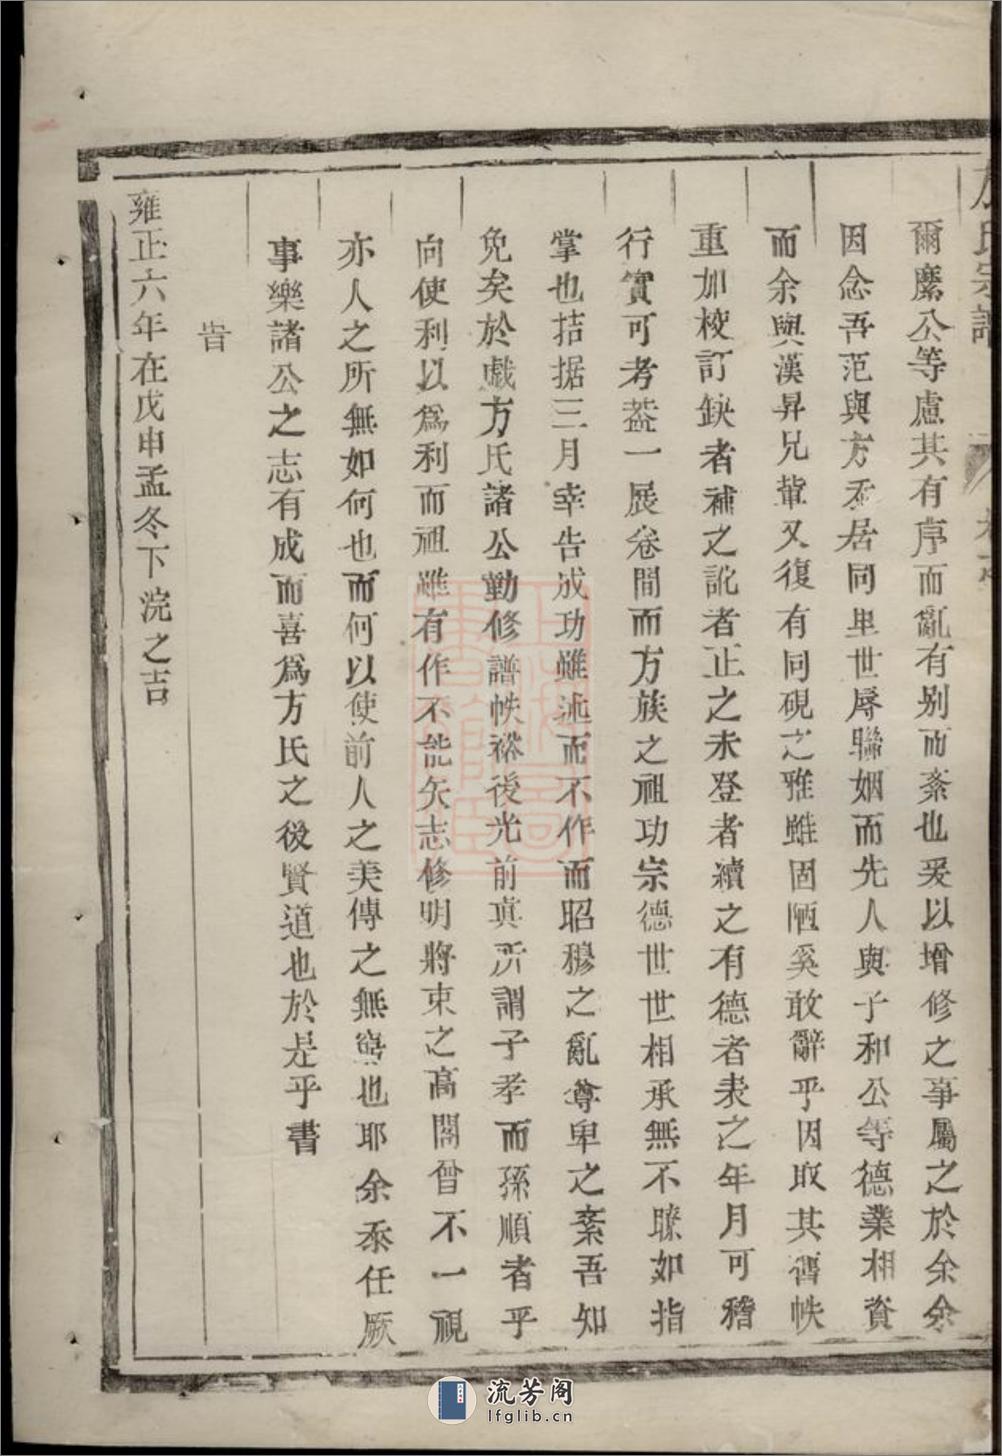 方氏宗譜
爾縻公等慮其有序而亂有别而紊也爰以增修之事屬之於余余
因念吾范與方忝居同里世辱聯姻而先人與子和公等德業相資
而余與漢昇兄輩又復有同硯之雅雖固陋奚敢辭乎因取其舊帙
重加校訂缺者補之訛者正之未登者續之有德者表之年月可稽
行實可考葢一展卷間而方族之祖功宗德世世相承無不瞭如指
掌也拮据三月幸告成功雖述而不作而昭穆之亂尊卑之紊吾知
免矣於戲方氏諸公勤修譜帙裕後光前真所謂子孝而孫順者乎
向使利以為利而祖雖有作不能矢志修明將束之高閣曾不一視
亦人之所無如何也而何以使前人之美傳之無窮也耶余忝任厥
事樂諸公之志有成而喜為方氏之後賢道也於是乎書
旹
雍正六年在戊申孟冬下浣之吉
流芳阁
lfglib.cn